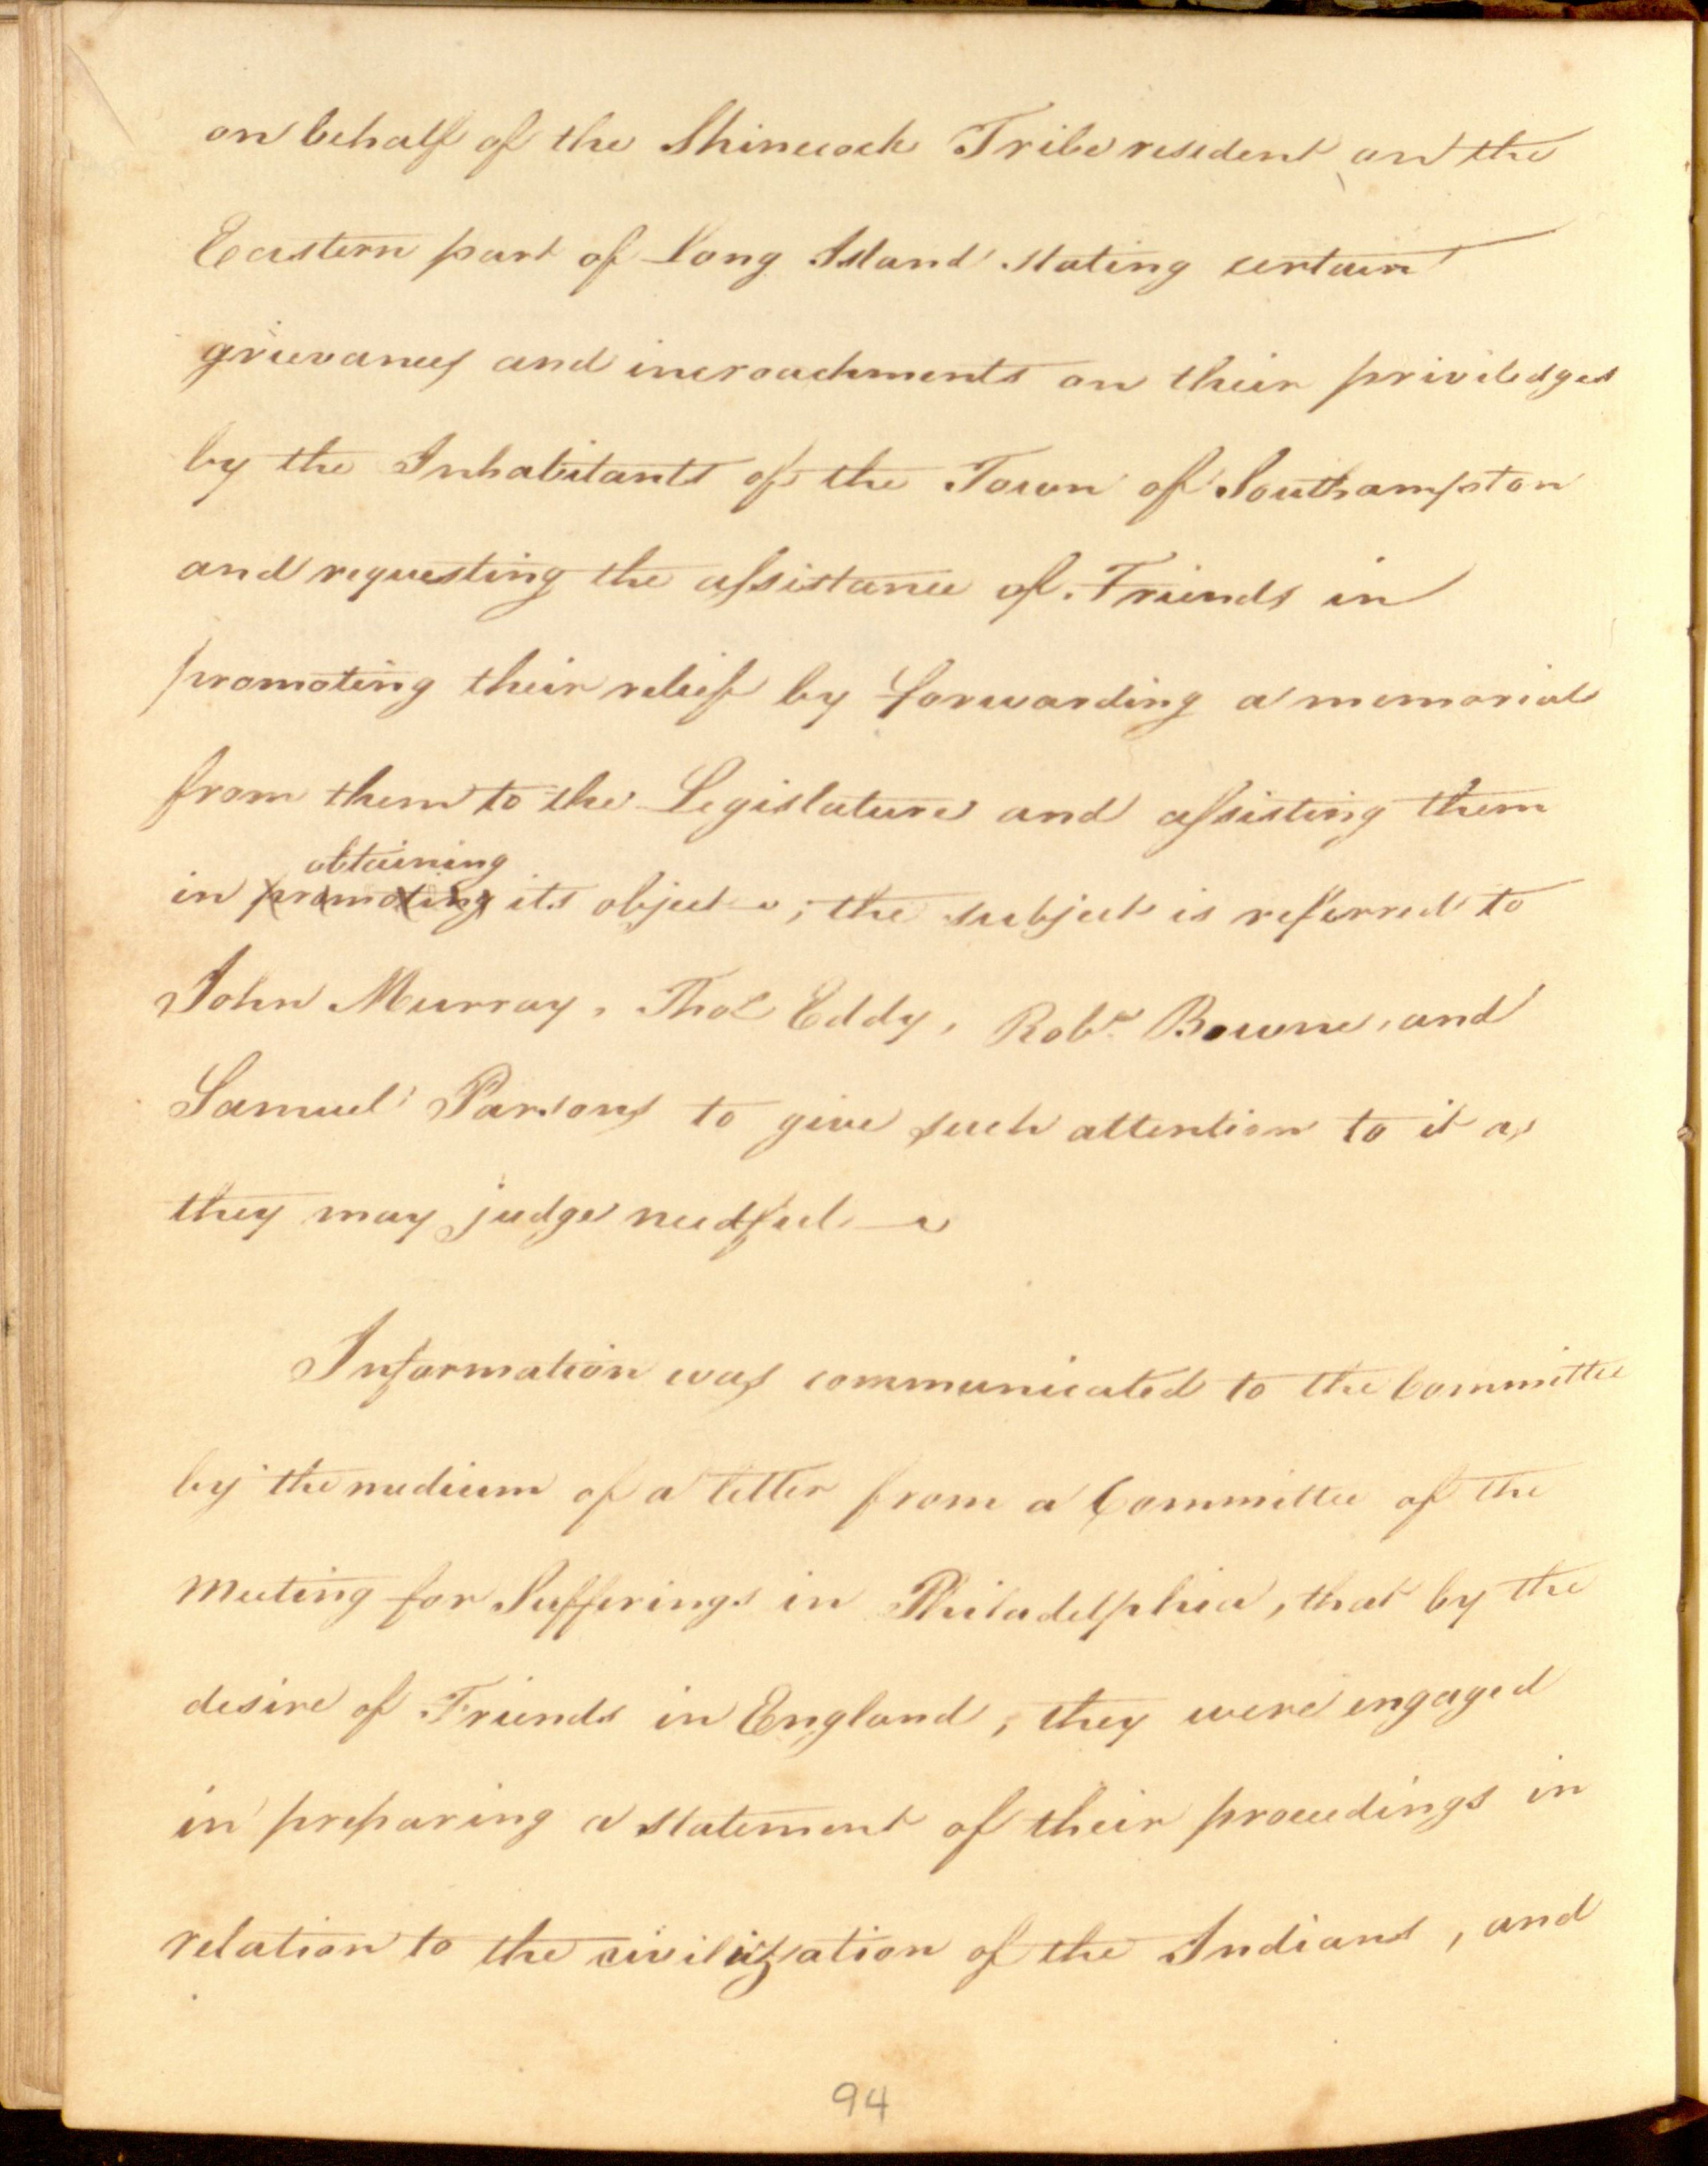 on behalf of the Shinecock Tribe resident on the
Eastern part of Long Island stating certain
grievances and incroachments on their priviledges
by the Inhabitants of the Town of Southampton
and requesting the assistance of Friends in
promoting their relief by forwarding a memorial
from them to the Legislature and assisting them
obtaining
in promoting its object ; the subject is referred to
John Murray, Thos Eddy, Robt Bowne, and
Samuel Parsons to give such attention to it as
they may judge needful —
Information was communicated to the Committee
by the medium of a letter from a Committee of the
Meeting for Sufferings in Philadelphia, that by the
desire of Friends in England, they were engaged
in preparing a statement of their proceedings in
relation to the civilization of the Indians, and
94